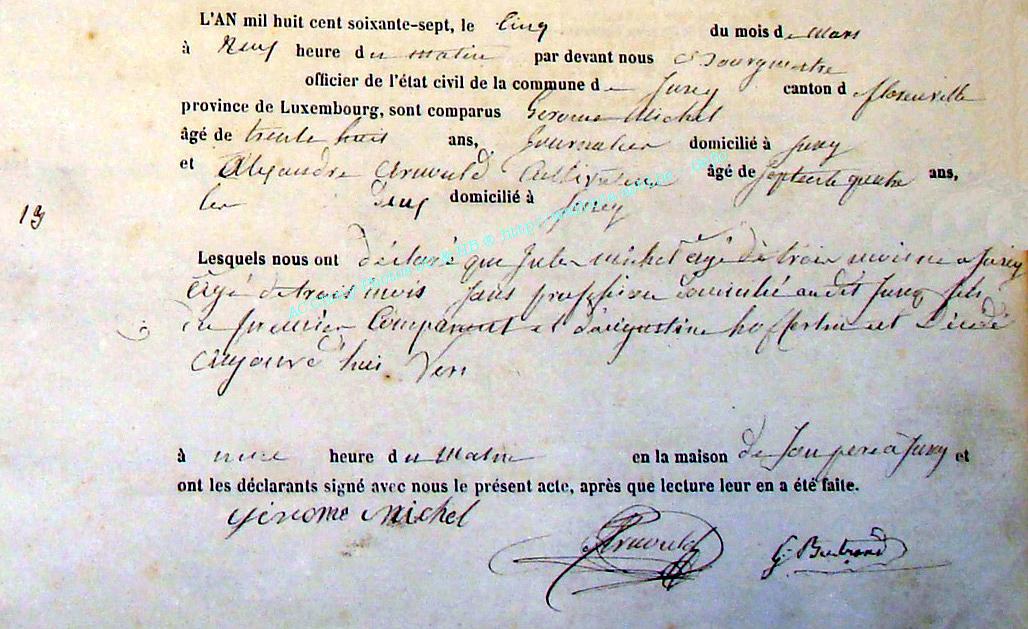 L'AN mil huit cent soixante-sept, le Cinq du mois de Mars
à Neuf heure du matin par devant nous Bourgmestre
officier de l'état civil de la commune de Jusey canton d florenville
province de Luxembourg, sont comparus Gerome Michel
âgé de trente huit ans, Journalier domicilié à Jusey
et Alexandre Arnould Cultivateur âgé de septente quatre ans,
domicilié à Jusey
19
Lesquels nous ont déclaré que Jules Michel âgé de trois mois né a Jusey
âgé de trois mois sans profession domicilié audit Jusey fils
du premier Comparant et d'augustine est Décédé
aujourd'hui vers
à une heure du Matin en la maison de son pere à Jusey et
ont les déclarants signé avec nous le présent acte, après que lecture leur en a été faite.
Gérome Michel
Arnould G. Bertrand